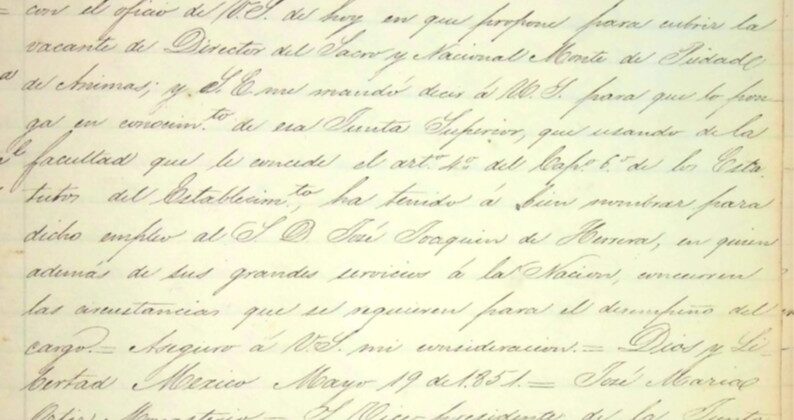 con el oficio de V.S. de hoy en que propone para cubrir la
vacante de Director del Sacro y Nacional Monte de Piedad
de Animas; y S.E. me mandó decir á V.S. para que lo pon-
ga en conocim.to de esa Junta Superior, que usando de la
facultad que le concede el art.o 4.o del Cap.o 6.o de los Esta-
tutos del Establecim.to ha tenido á bien nombrar para
dicho empleo al S. D. José Joaquin de Herrera, en quien
además de sus grandes servicios á la Nacion, concurren
las circustancias que se requieren para el desempeño del
cargo.= Aseguro á V.S. mi consideracion.= Dios y Li-
bertad Mexico Mayo 19 de 1851.= José Maria
Ortiz Monasterio = S. Vice-presidente de la Junta